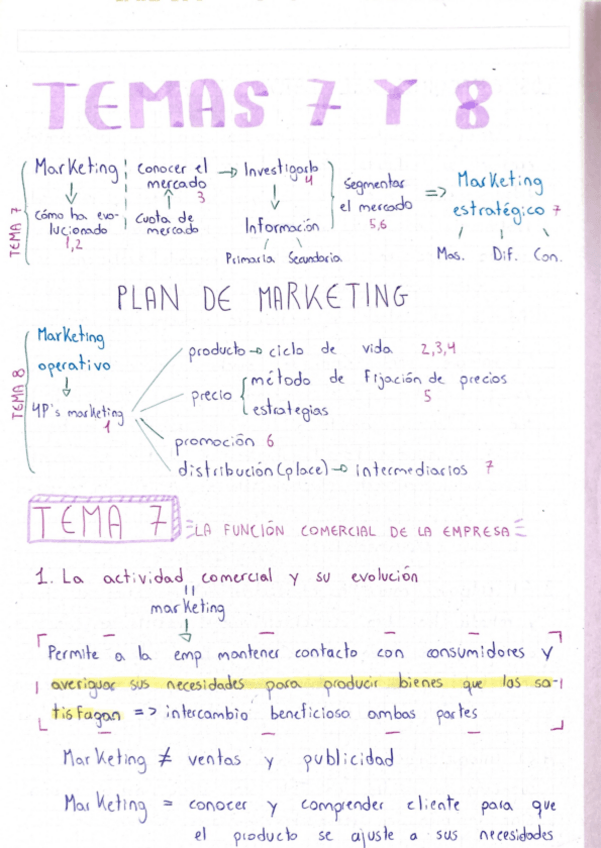 TEMAS 7 Y 8
TEMA 7
Marketing conocer el mercado 3 → Investigarlo 4 Segmentar el mercado 5,6 => Marketing estratégico 7
Cómo ha evo-lucionado 1,2 Cuota de mercado Información Mas. Dif. Con.
Primaria Secundaria
PLAN DE MARKETING
TEMA 8
Marketing operativo
4P's marketing 1
producto → ciclo de vida 2,3,4
precio método de fijación de precios 5
estrategias
promoción 6
distribución (place) → intermediarios 7
TEMA 7 LA FUNCIÓN COMERCIAL DE LA EMPRESA
1. La actividad comercial y su evolución
marketing
Permite a la emp mantener contacto con consumidores y
averiguar sus necesidades para producir bienes que las sa-
tisfagan => intercambio beneficioso ambas partes
Marketing ≠ ventas y publicidad
Marketing = conocer y comprender cliente para que
el producto se ajuste a sus necesidades